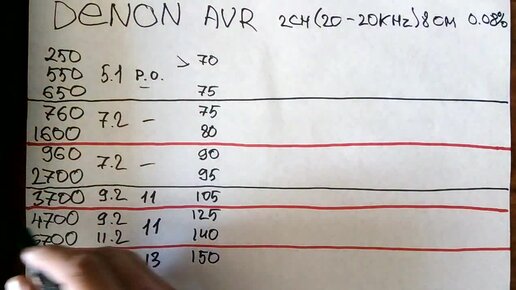 DENON AVR 2CH (20-20KHz) 8 OM 0.08%
250 > 70
550 5.1 P.O.
650 — 75
760 7.2 — 75
1600 80
960 7.2 — 90
2700 95
3700 9.2 11 105
4700 9.2 11 125
11.2 140
13 150